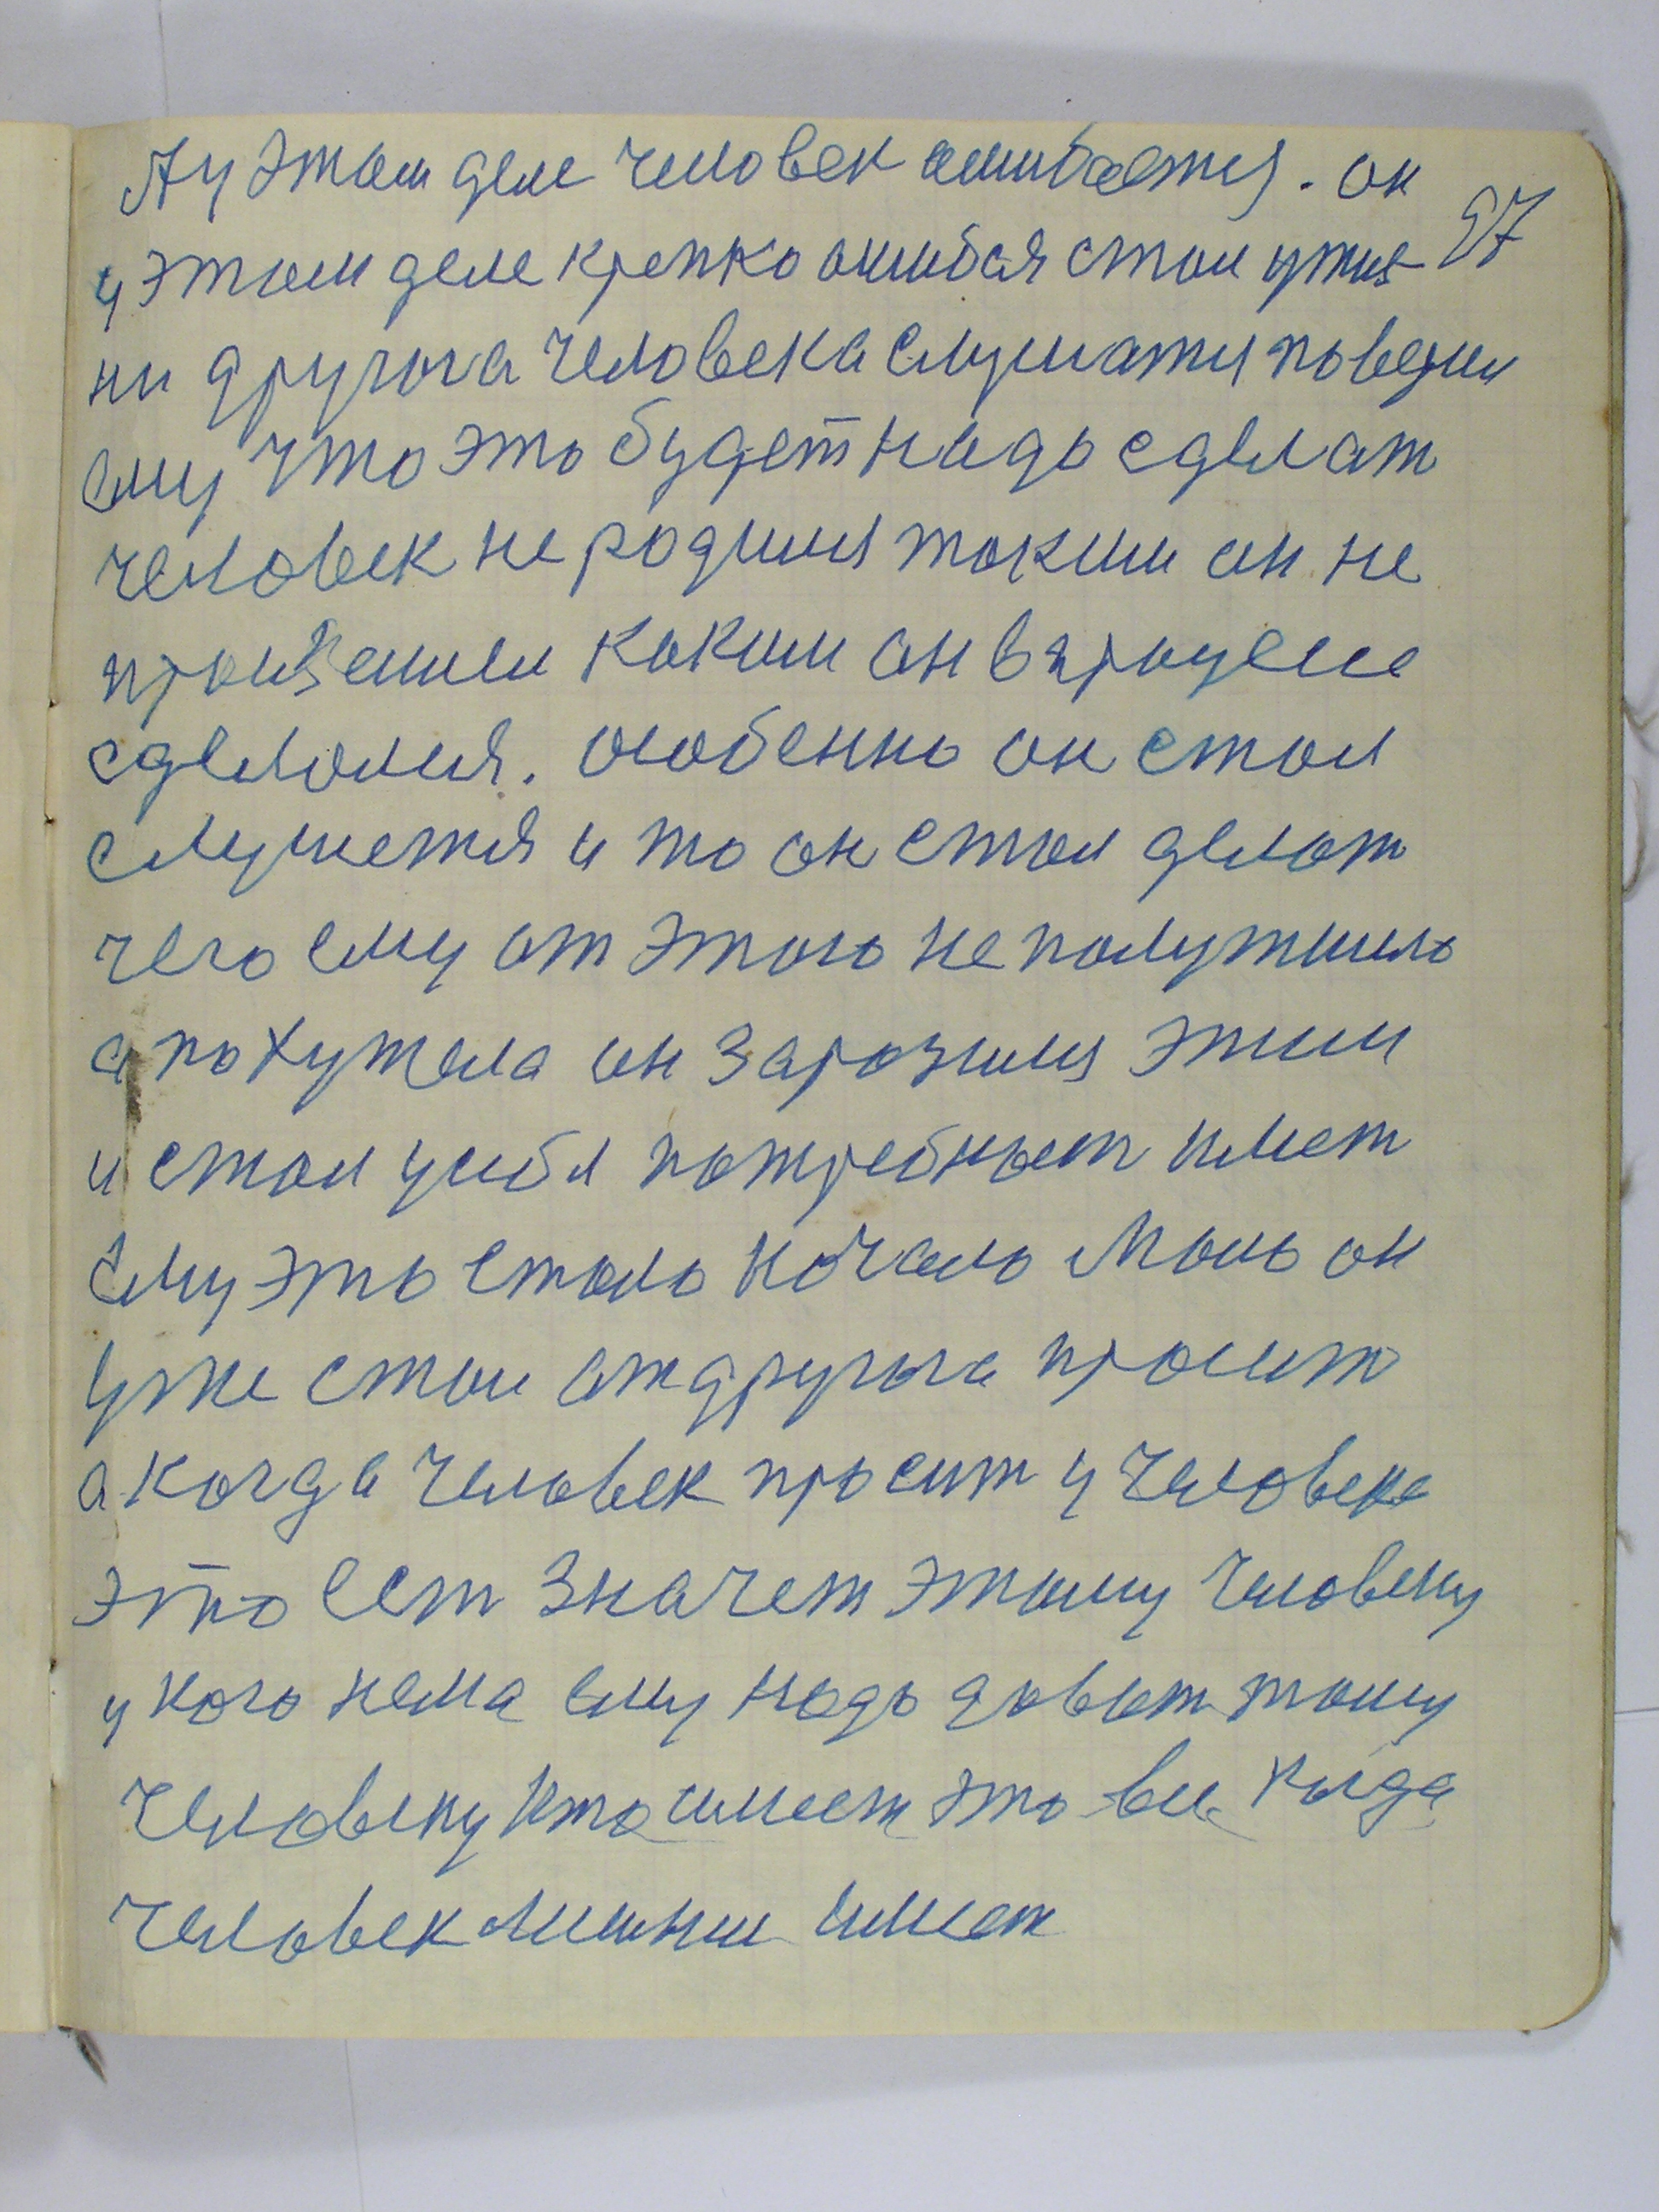 А у этом деле человек ошибается. он
97
у этом деле крепко ошибся стал у жиз
ни другога человека слушатся поверил
ему что это будет надо сделат
человек не родился таким он не
произашел каким он в яроуеме
сделался. особенно он стал
слушется и то он стал делат
чего ему от этого не получшело
а похужела он заразился этим
и стал у себя потребност имет
ему это стало начало мало он
уже стал от другога просит
а когда человек просит у человека
это ест значет этому человеку
у кого нема ему надо доват тому
человеку кто имеет это все когда
человек лишнии имеет